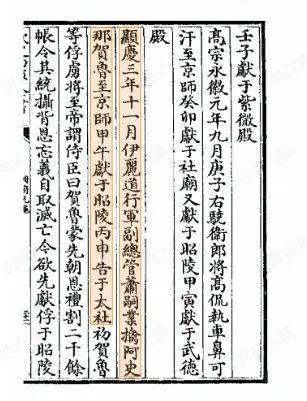 壬子獻于紫微殿
高宗永徽元年九月庚子右驍衛郎將高侃執車鼻可
汗至京師癸卯獻于社廟又獻于昭陵甲寅獻于武德
殿
顯慶三年十一月伊麗道行軍副總管蕭嗣業擒阿史
那賀魯至京師甲午獻于昭陵丙申告于太社初賀魯
等俘虜將至帝謂侍臣曰賀魯蒙先朝恩禮割二千餘
帳令其統攝背恩忘義自取滅亡今欲先獻俘于昭陵